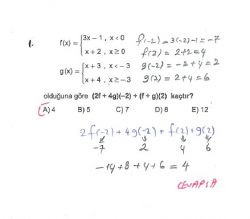 1.
f(x) = { 3x − 1 , x < 0
x + 2 , x ≥ 0
g(x) = { x + 3 , x < −3
x + 4 , x ≥ −3
f(-2) = 3(-2)-1 = -7
f(2) = 2+2 = 4
g(-2) = -2+4 = 2
g(2) = 2+4 = 6
olduğuna göre (2f + 4g)(−2) + (f + g)(2) kaçtır?
A) 4 B) 5 C) 7 D) 8 E) 12
2f(-2) + 4g(-2) + f(2) + g(2)
-7 2 4 6
-14+8+4+6 = 4
CEVAP: A